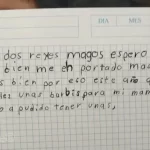 DIA MES
dos reyes magos espero
bien me eh portado ma
s bien por eso este año q
les unas burbis para mi mam
o a pudido tener unas,